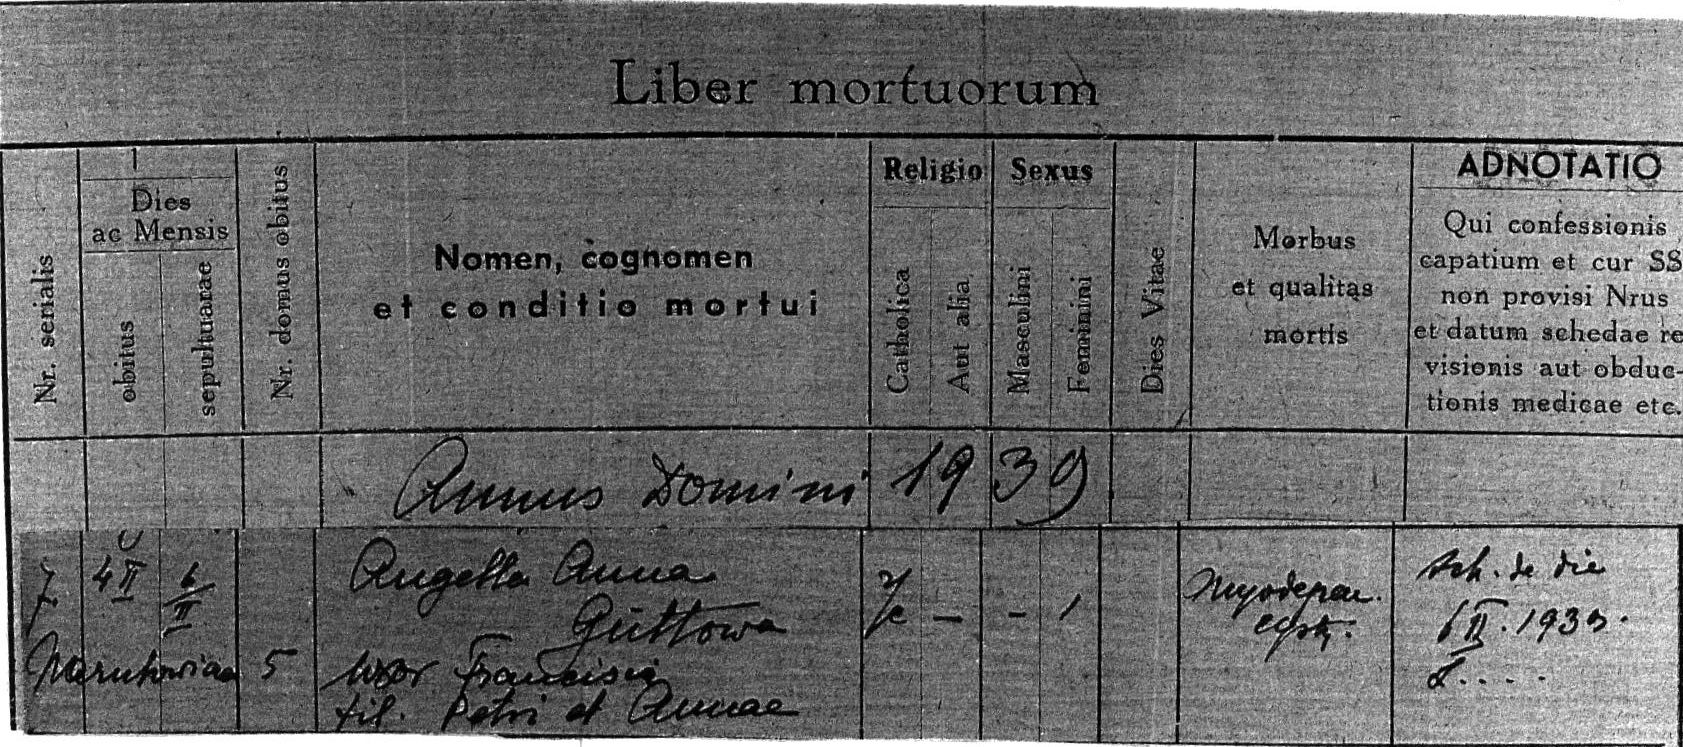 Liber mortuorum
Nr. serialis
Dies
ac Mensis
obitus
sepultuarae
Nr. domus obitus
Nomen, cognomen
et conditio mortui
Religio
Catholica
Aut alia
Sexus
Masculini
Feminini
Dies Vitae
Morbus
et qualitas
mortis
ADNOTATIO
Qui confessionis
capatium et cur SS
non provisi Nrus
et datum schedae re
visionis aut obduc-
tionis medicae etc.
Annus Domini 1939
7. 4 II 6/II Angella Anna
Güttowa
– – 1
sch. de die
6 II. 1939.
Narutowicza 5 uxor Francisci
fil. Petri et Annae